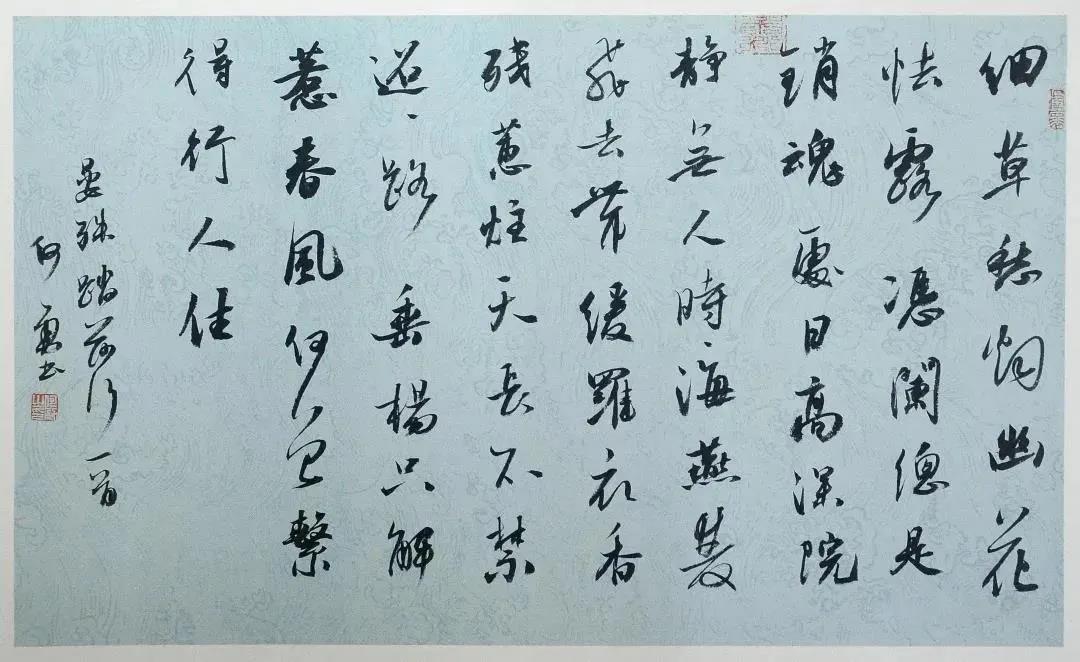 細草愁烟幽花
怯露憑闌總是
銷魂處日高深院
靜無人時時海燕雙
飛去帶緩羅衣香
殘蕙炷天長不禁
迢迢路垂楊只解
惹春風何曾繫
得行人住
晏殊踏莎行一首
何書